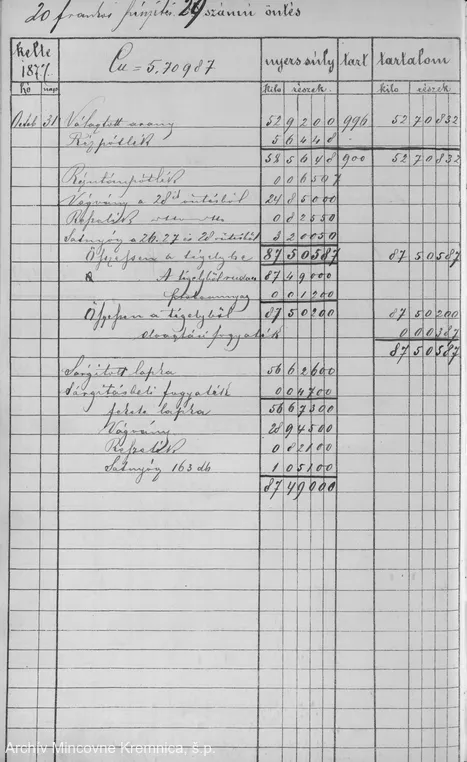 20 frankos pénzítés 29 számú öntés
kelte 1877 Cu = 5.70987 nyerssúly tart tartalom
hó nap kilo részek kilo részek
Octob 31 Választott arany 52 9200 996 52 70832
Rézpótlék 5 6448
58 5648 900 52 70832
0 06507
Vágvány a 28ik öntésből 24 85000
Rapalék 0 82550
Sátnyóg a 26. 27 és 28 öntésből 3 20050
Összesen a tégelybe 87 50587 87 50587
A tégelyből rudak 87 49000
0 01200
Összesen a tégelyből 87 50200 87 50200
olvasztási fogyaték 0 00387
87 50587
Sárgított lapka 56 62600
Sárgításbeli fogyaték 0 04700
fekete lapka 56 67300
Vágvány 28 94500
0 82100
Sátnyóg 163 db 1 05100
87 49000
Archív Mincovne Kremnica, š.p.